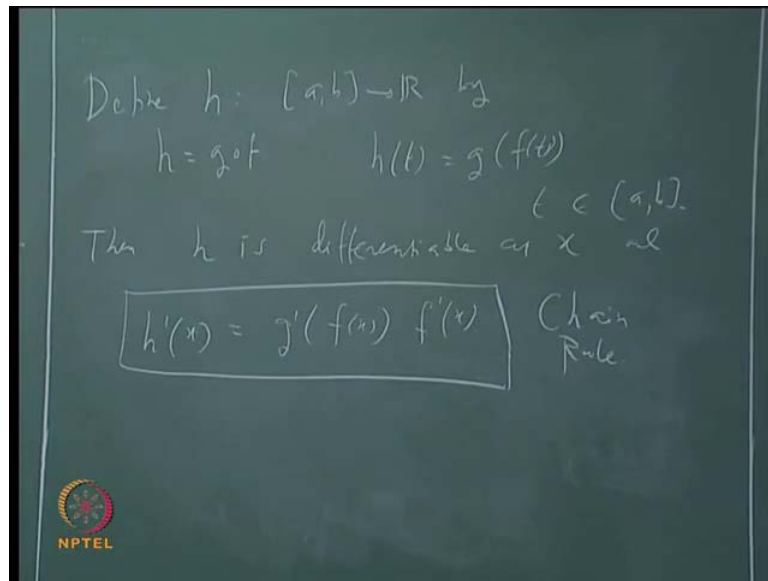 Define h: [a,b] → ℝ by
h = g∘f h(t) = g(f(t))
t ∈ [a,b].
Then h is differentiable at x and
h'(x) = g'(f(x)) f'(x) Chain
Rule.
NPTEL